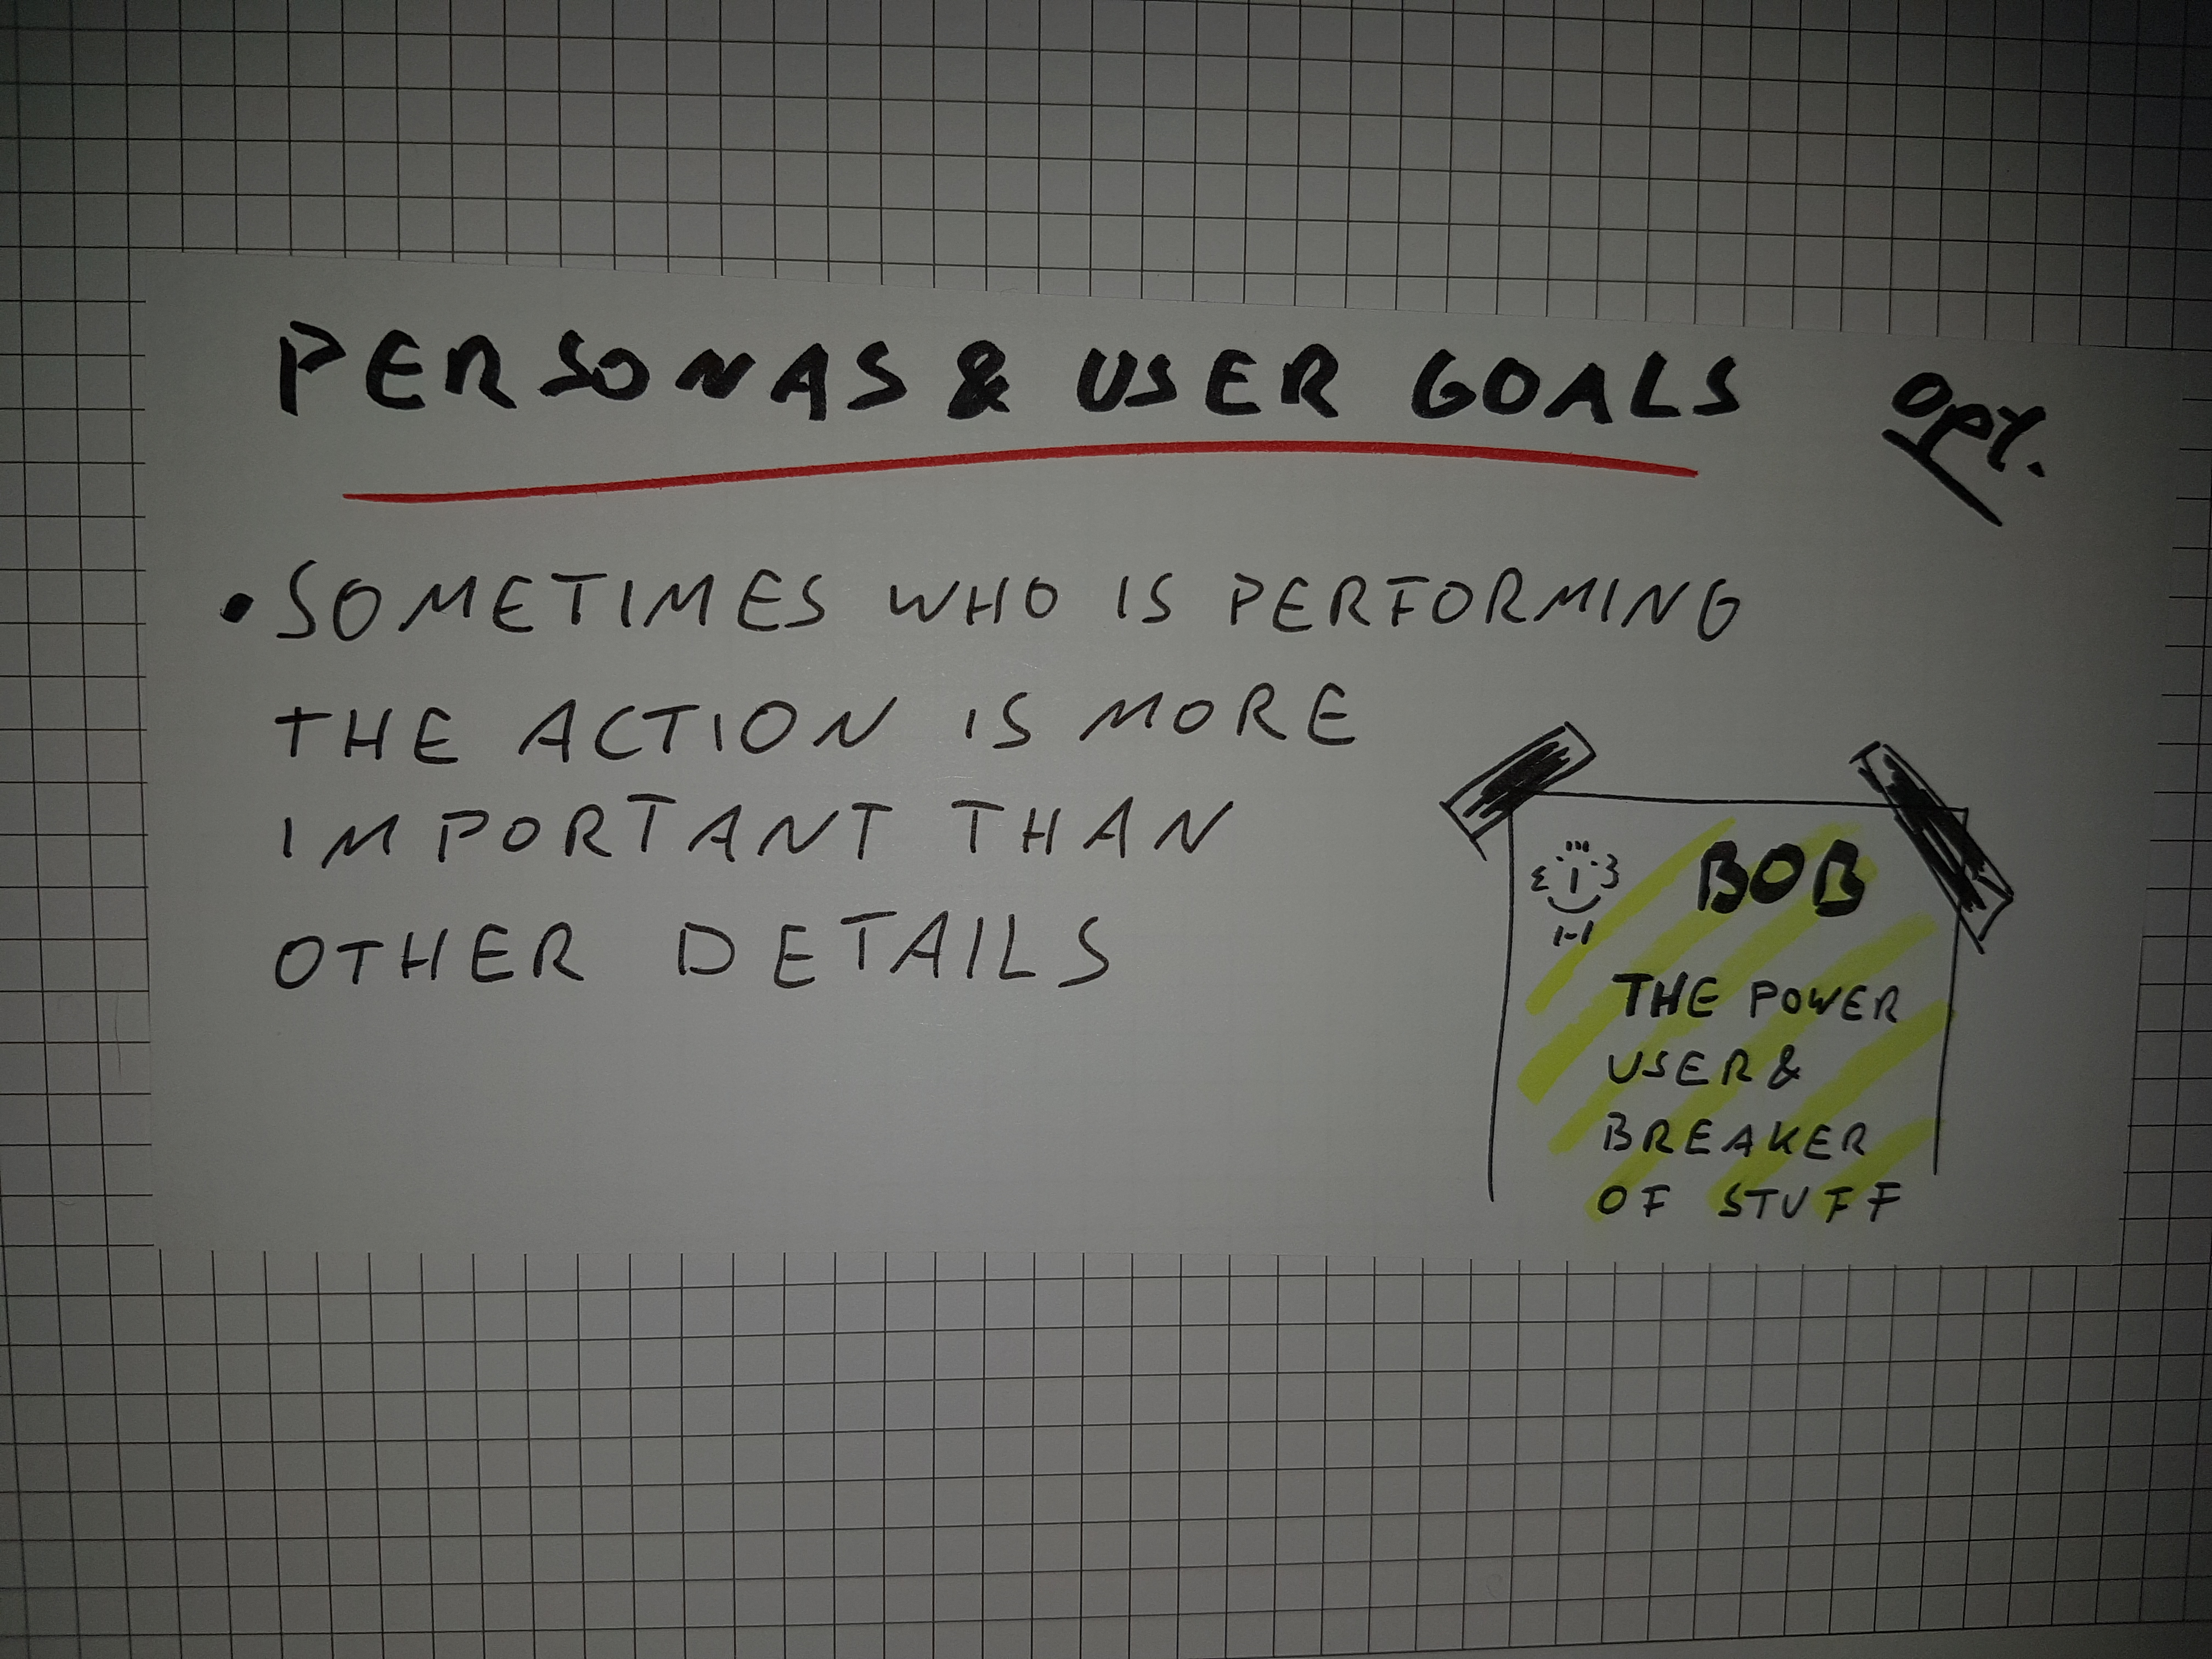 PERSONAS & USER GOALS
OPT.
• SOMETIMES WHO IS PERFORMING
THE ACTION IS MORE
IMPORTANT THAN
OTHER DETAILS
BOB
THE POWER
USER &
BREAKER
OF STUFF